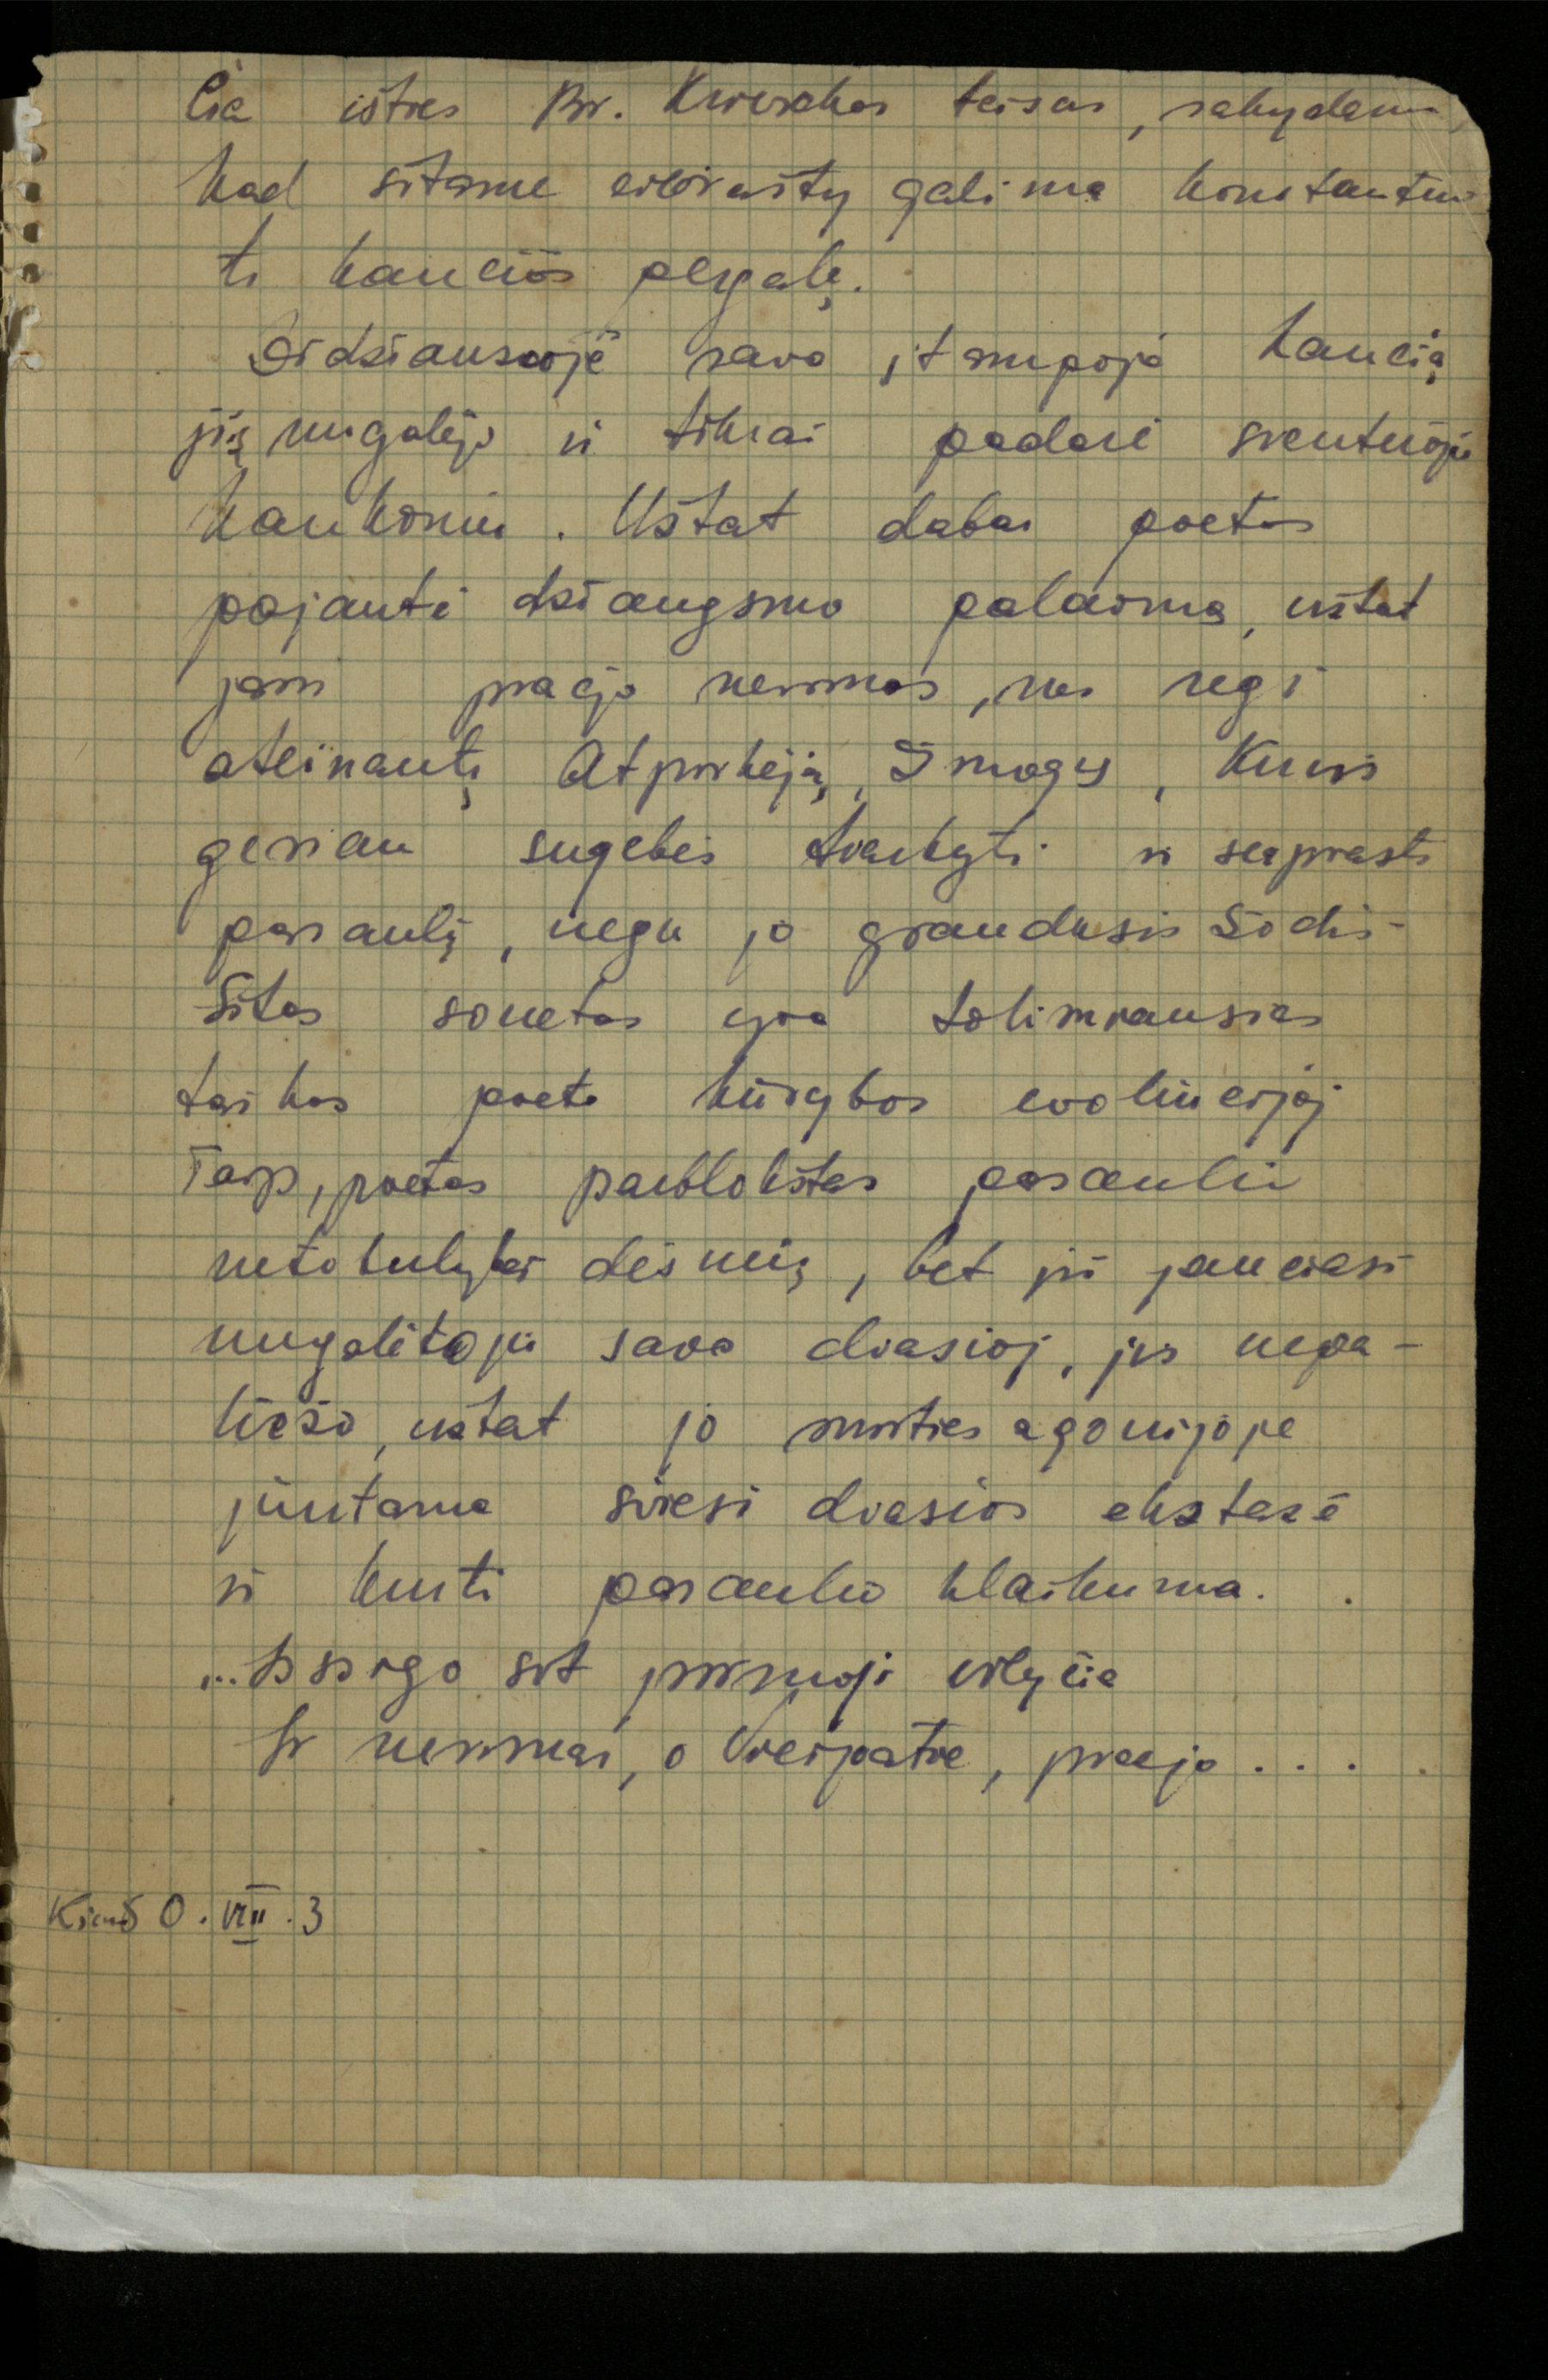 Čia ištres Br. Krivickas teisus, sakydamas,
kad šitame eilėrašty galima konstantuo
ti kančios pergalę.
Didžiausioje savo įtampoje kančią
jis nugalėjo ir tikrai padarė šventuoju
kankiniu. Užtat dabar poetas
pojautė džiaugsmo palaimą, užtat
jam praėjo nerimas, nes regi
ateinantį Atpirkėją, Žmogų, Kuris
geriau sugebės tvarkyti ir suprasti
pasaulį, negu jo graudusis žodis
Šitas sonetas yra tolimiausias
taikos poeto kūrybos evoliucijoj
Taip, poetas parblokštas pasaulio
netobulybės dėsnių, bet jis jaučiasi
nugalėtoju savo dvasioj, jis nepa-
lūžo, užtat jo mirties agonijoje
juntama šviesi dvasios ekstazė
ir kurti pasaulio klaikuma.
... Išsirgo šit pirmoji vilyčia
Ir nerimas, o Viešpatie, praėjo . . .
50. VIII. 3